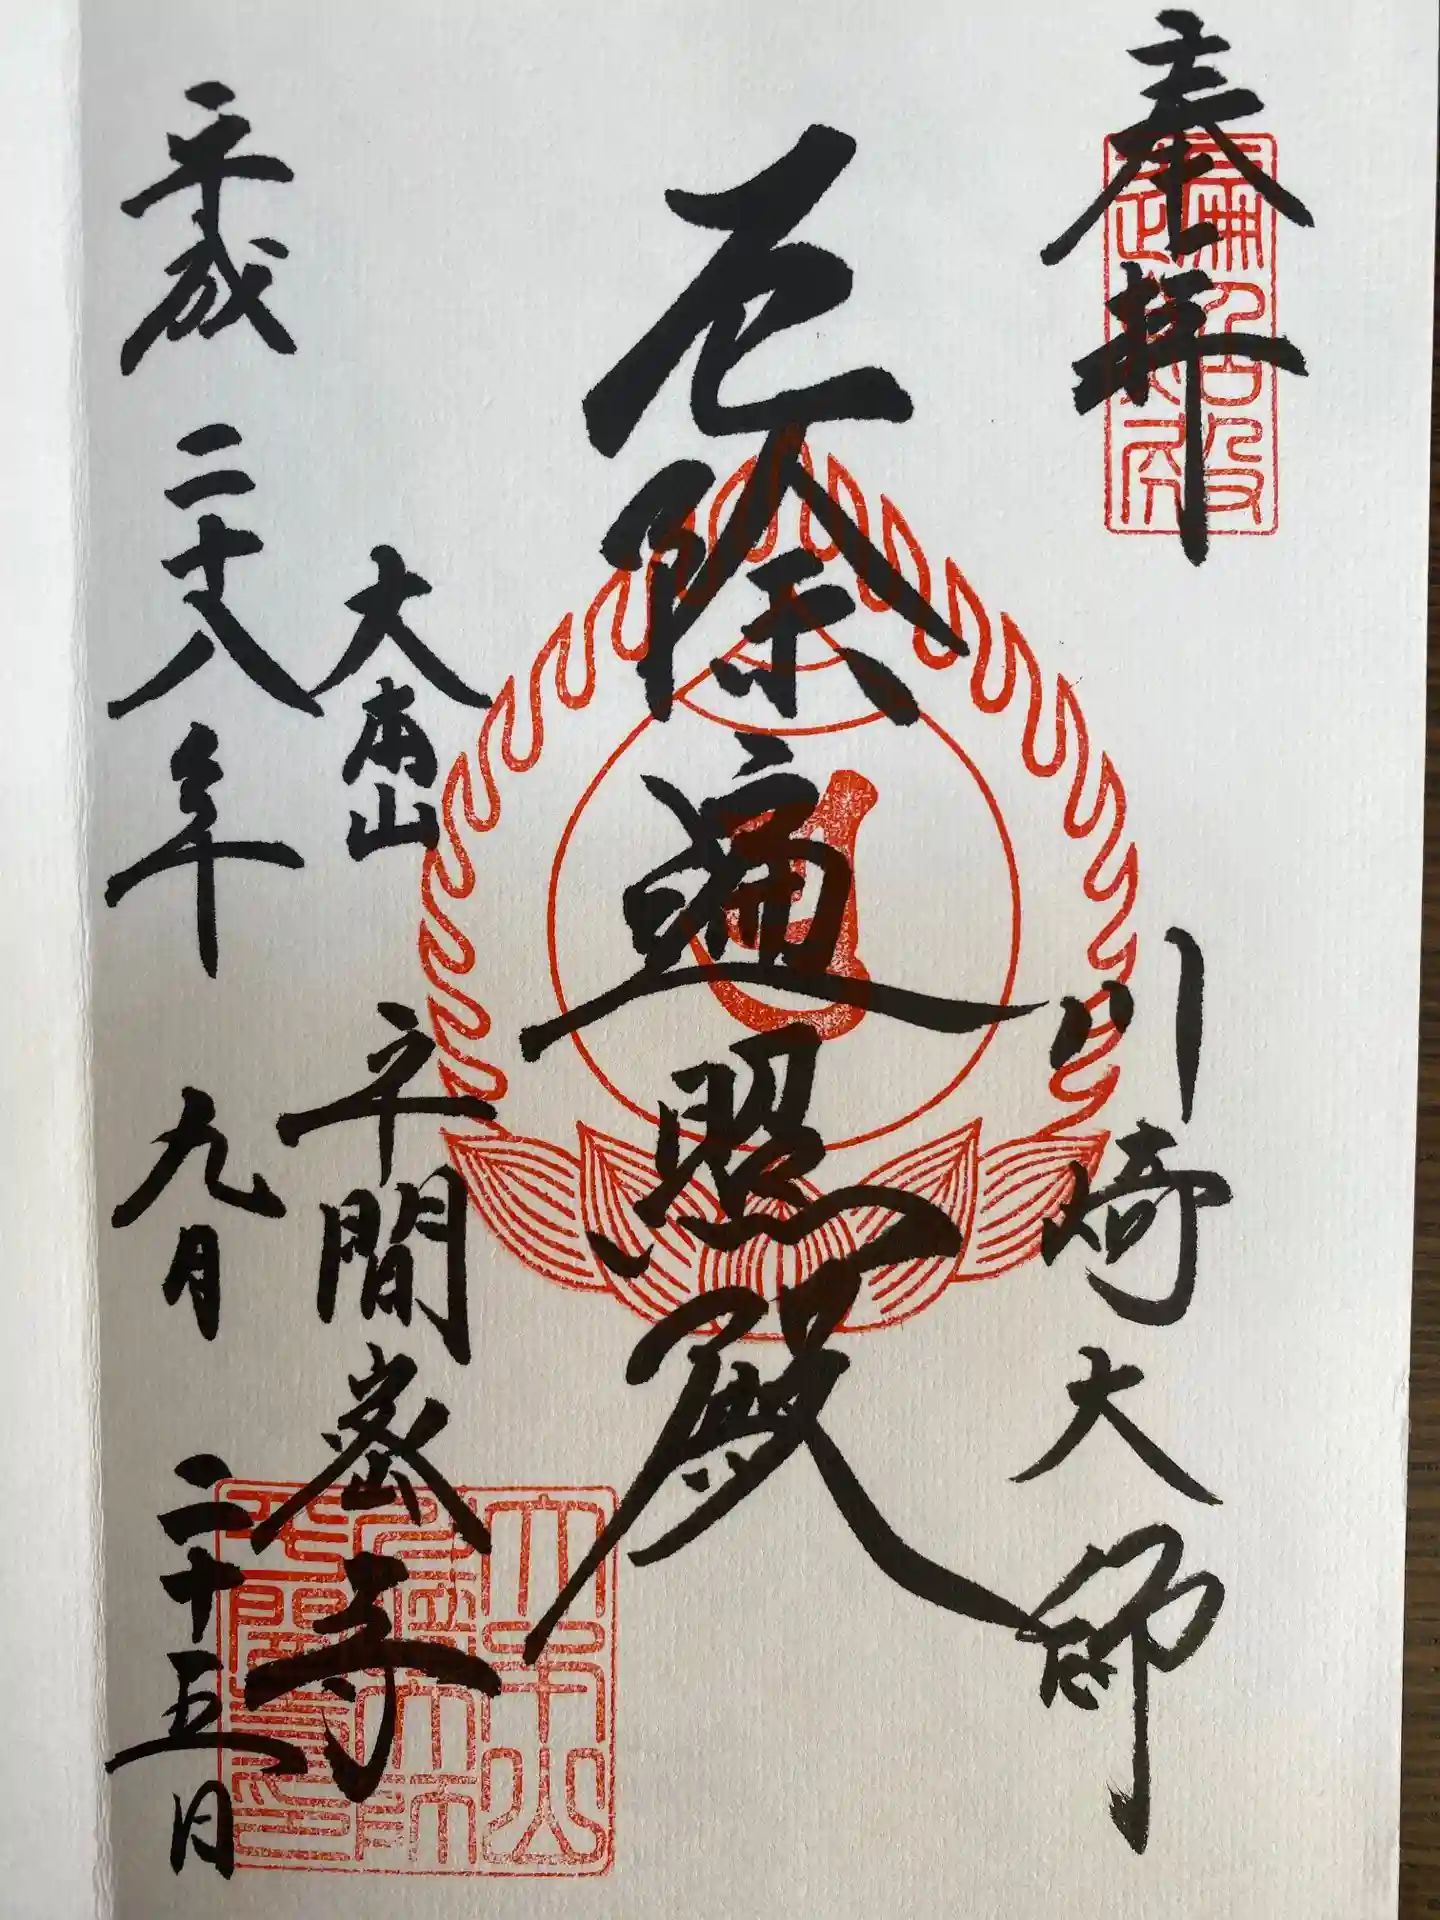 奉拝
川崎大師
厄除遍照殿
大本山
平間寺
平成二十八年九月二十五日